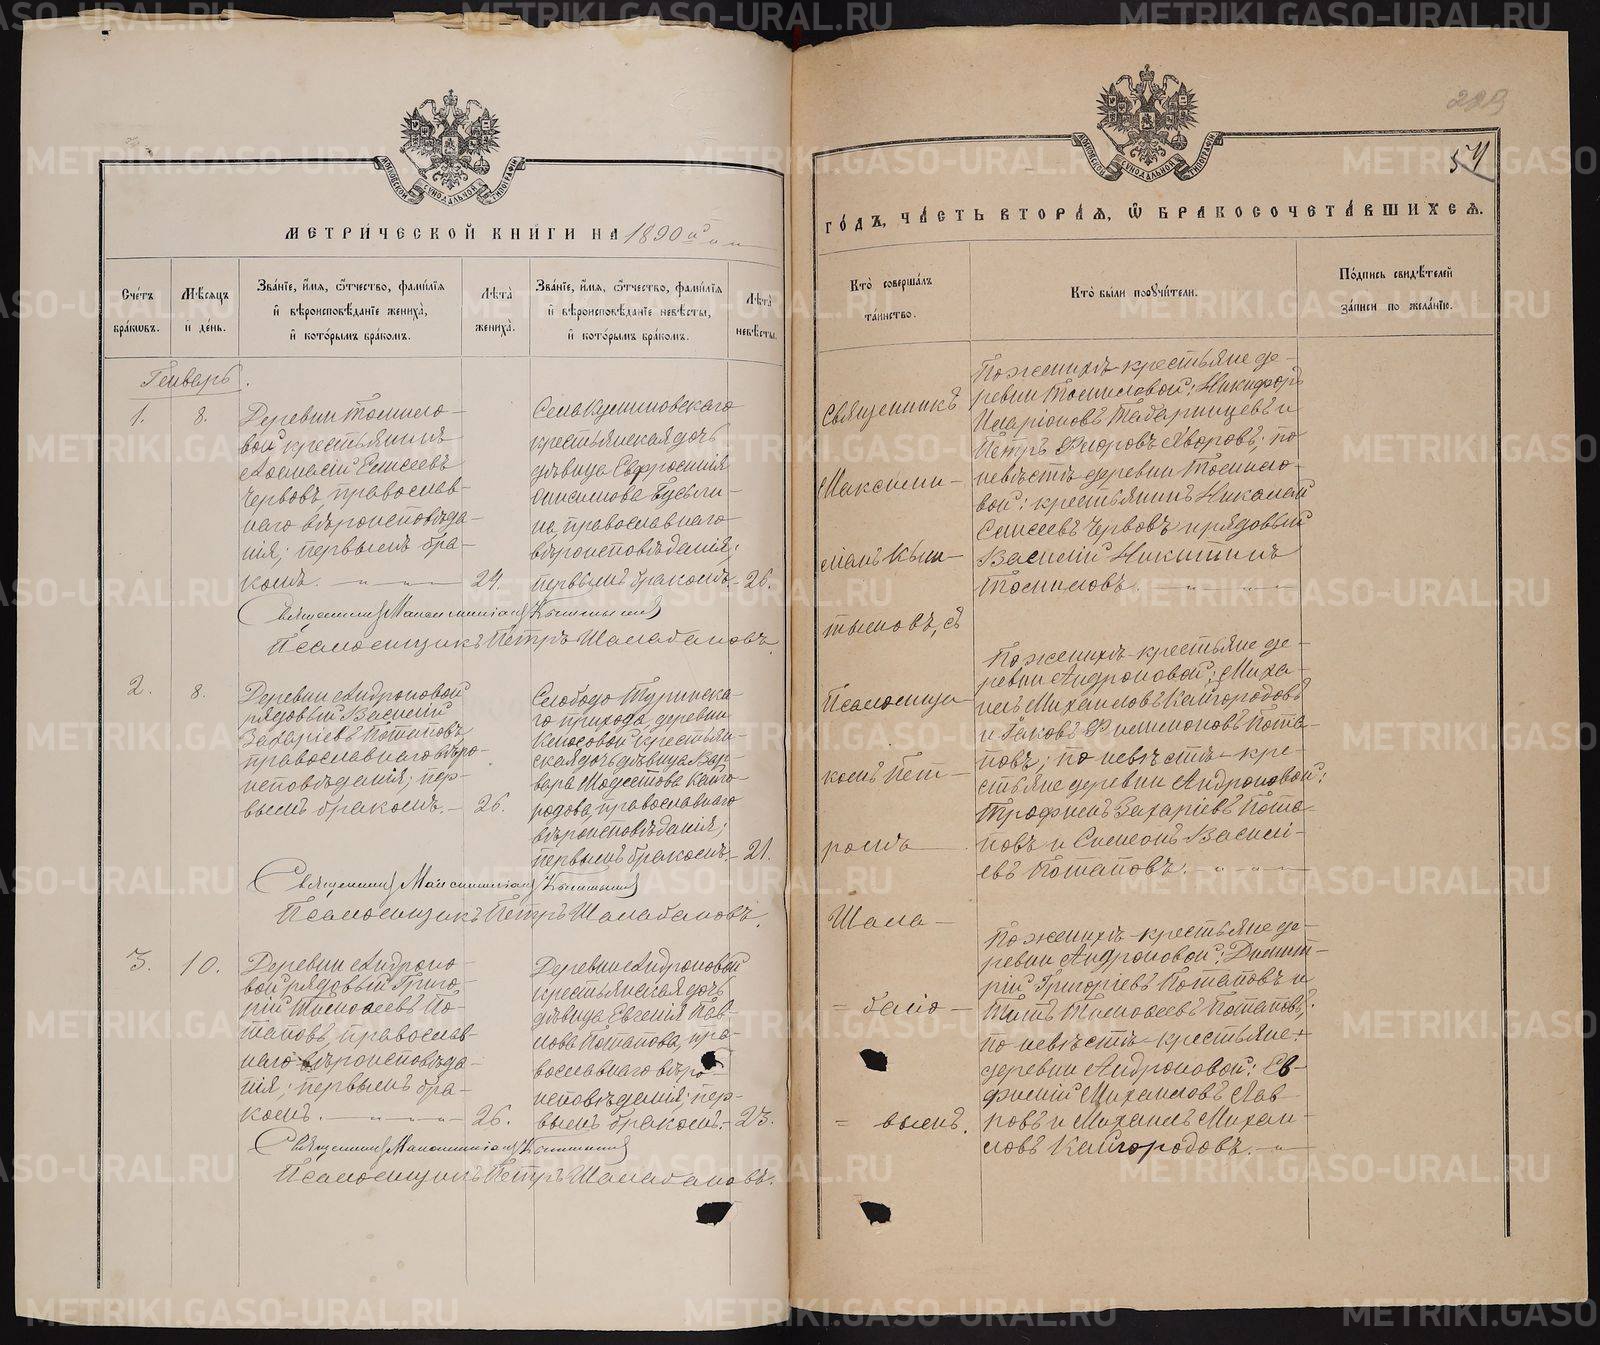 МЕТРИ́ЧЕСКОЙ КНИ́ГИ НА 1890 й
Сче́тъ бра́ковъ.
Мѣ́сяцъ и҆ де́нь.
Зва́нїе, и҆́мѧ, ѻ҆́тчество, фами́лїѧ и҆ вѣроисповѣ́данїе жениха̀, и҆ кото́рымъ бра́комъ.
Лѣта̀ жениха̀.
Зва́нїе, и҆́мѧ, ѻ҆́тчество, фами́лїѧ и҆ вѣроисповѣ́данїе невѣ́сты, и҆ кото́рымъ бра́комъ.
Лѣта̀ невѣ́сты.
Генварь.
1.
8.
Деревни Томило-
вой крестьянинъ
Афанасій Елисеевъ
Червовъ православ-
наго вѣроисповѣда-
нія; первымъ бра-
комъ.
24.
Села Кушновскаго
крестьянская дочь
дѣвица Евфросинія
Анисимова Гусели-
на, православнаго
вѣроисповѣданія;
первымъ бракомъ
26.
Священникъ Максимиліанъ
Псаломщикъ Петръ Шалабановъ.
2.
8.
Деревни Андроновой
рядовый Василій
Захаріевъ Потаповъ,
православнаго вѣро-
исповѣданія; пер-
вымъ бракомъ.
26.
Слободо Туринска-
го прихода, деревни
крестьян-
ская дочь дѣвица Вар-
вара Модестова Кайго-
родова, православнаго
вѣроисповѣданія;
первымъ бракомъ
21.
Священникъ Максимиліанъ
Псаломщикъ Петръ Шалабановъ.
3.
10.
Деревни Андроно-
вой рядовый Григо-
рій Тимофеевъ По-
таповъ, православ-
наго вѣроисповѣда-
нія; первымъ бра-
комъ.
26.
Деревни Андроновой
крестьянская дочь
дѣвица Евгенія Пав-
лова Потапова, пра-
вославнаго вѣро-
исповѣданія; пер-
вымъ бракомъ.
23.
Священникъ Максимиліанъ
Псаломщикъ Петръ Шалабановъ.
54
ГО́ДЪ, ЧА́СТЬ ВТОРА́Ѧ, Ѡ҆ БРАКОСОЧЕТА́ВШИХСѦ.
Кто̀ соверша́лъ та́инство.
Кто̀ бы́ли пор҄учи́тели.
По́дпись свидѣ́телей за́писи по жела́нїю.
Священникъ
Максими-
ліанъ
съ
Псаломщи-
комъ Пет-
ромъ
Шала-
= бано-
= вымъ.
По женихѣ крестьяне де-
ревни Томиловой: Никифоръ
Иларіоновъ Таборинцевъ и
Петръ Яворовъ; по
невѣстѣ деревни Томило-
вой: крестьянинъ Николай
Елисеевъ Червовъ и рядовый
Василій Никитинъ
Томиловъ.
По женихѣ крестьяне де-
ревни Андроновой; Миха-
илъ Михаиловъ Кайгородовъ
и Іаковъ Филимоновъ Пота-
повъ; по невѣстѣ кре-
стьяне деревни Андроновой:
Трофимъ Захаріевъ Пота-
повъ и Симеонъ Василі-
евъ Потаповъ.
По женихѣ крестьяне де-
ревни Андроновой: Димит-
рій Григоріевъ Потаповъ и
Титъ Тимофеевъ Потаповъ;
по невѣстѣ крестьяне
деревни Андроновой: Ев-
фимій Михаиловъ Лав-
ровъ и Михаилъ Михаи-
ловъ Кайгородовъ.
METRIKI.GASO-URAL.RU